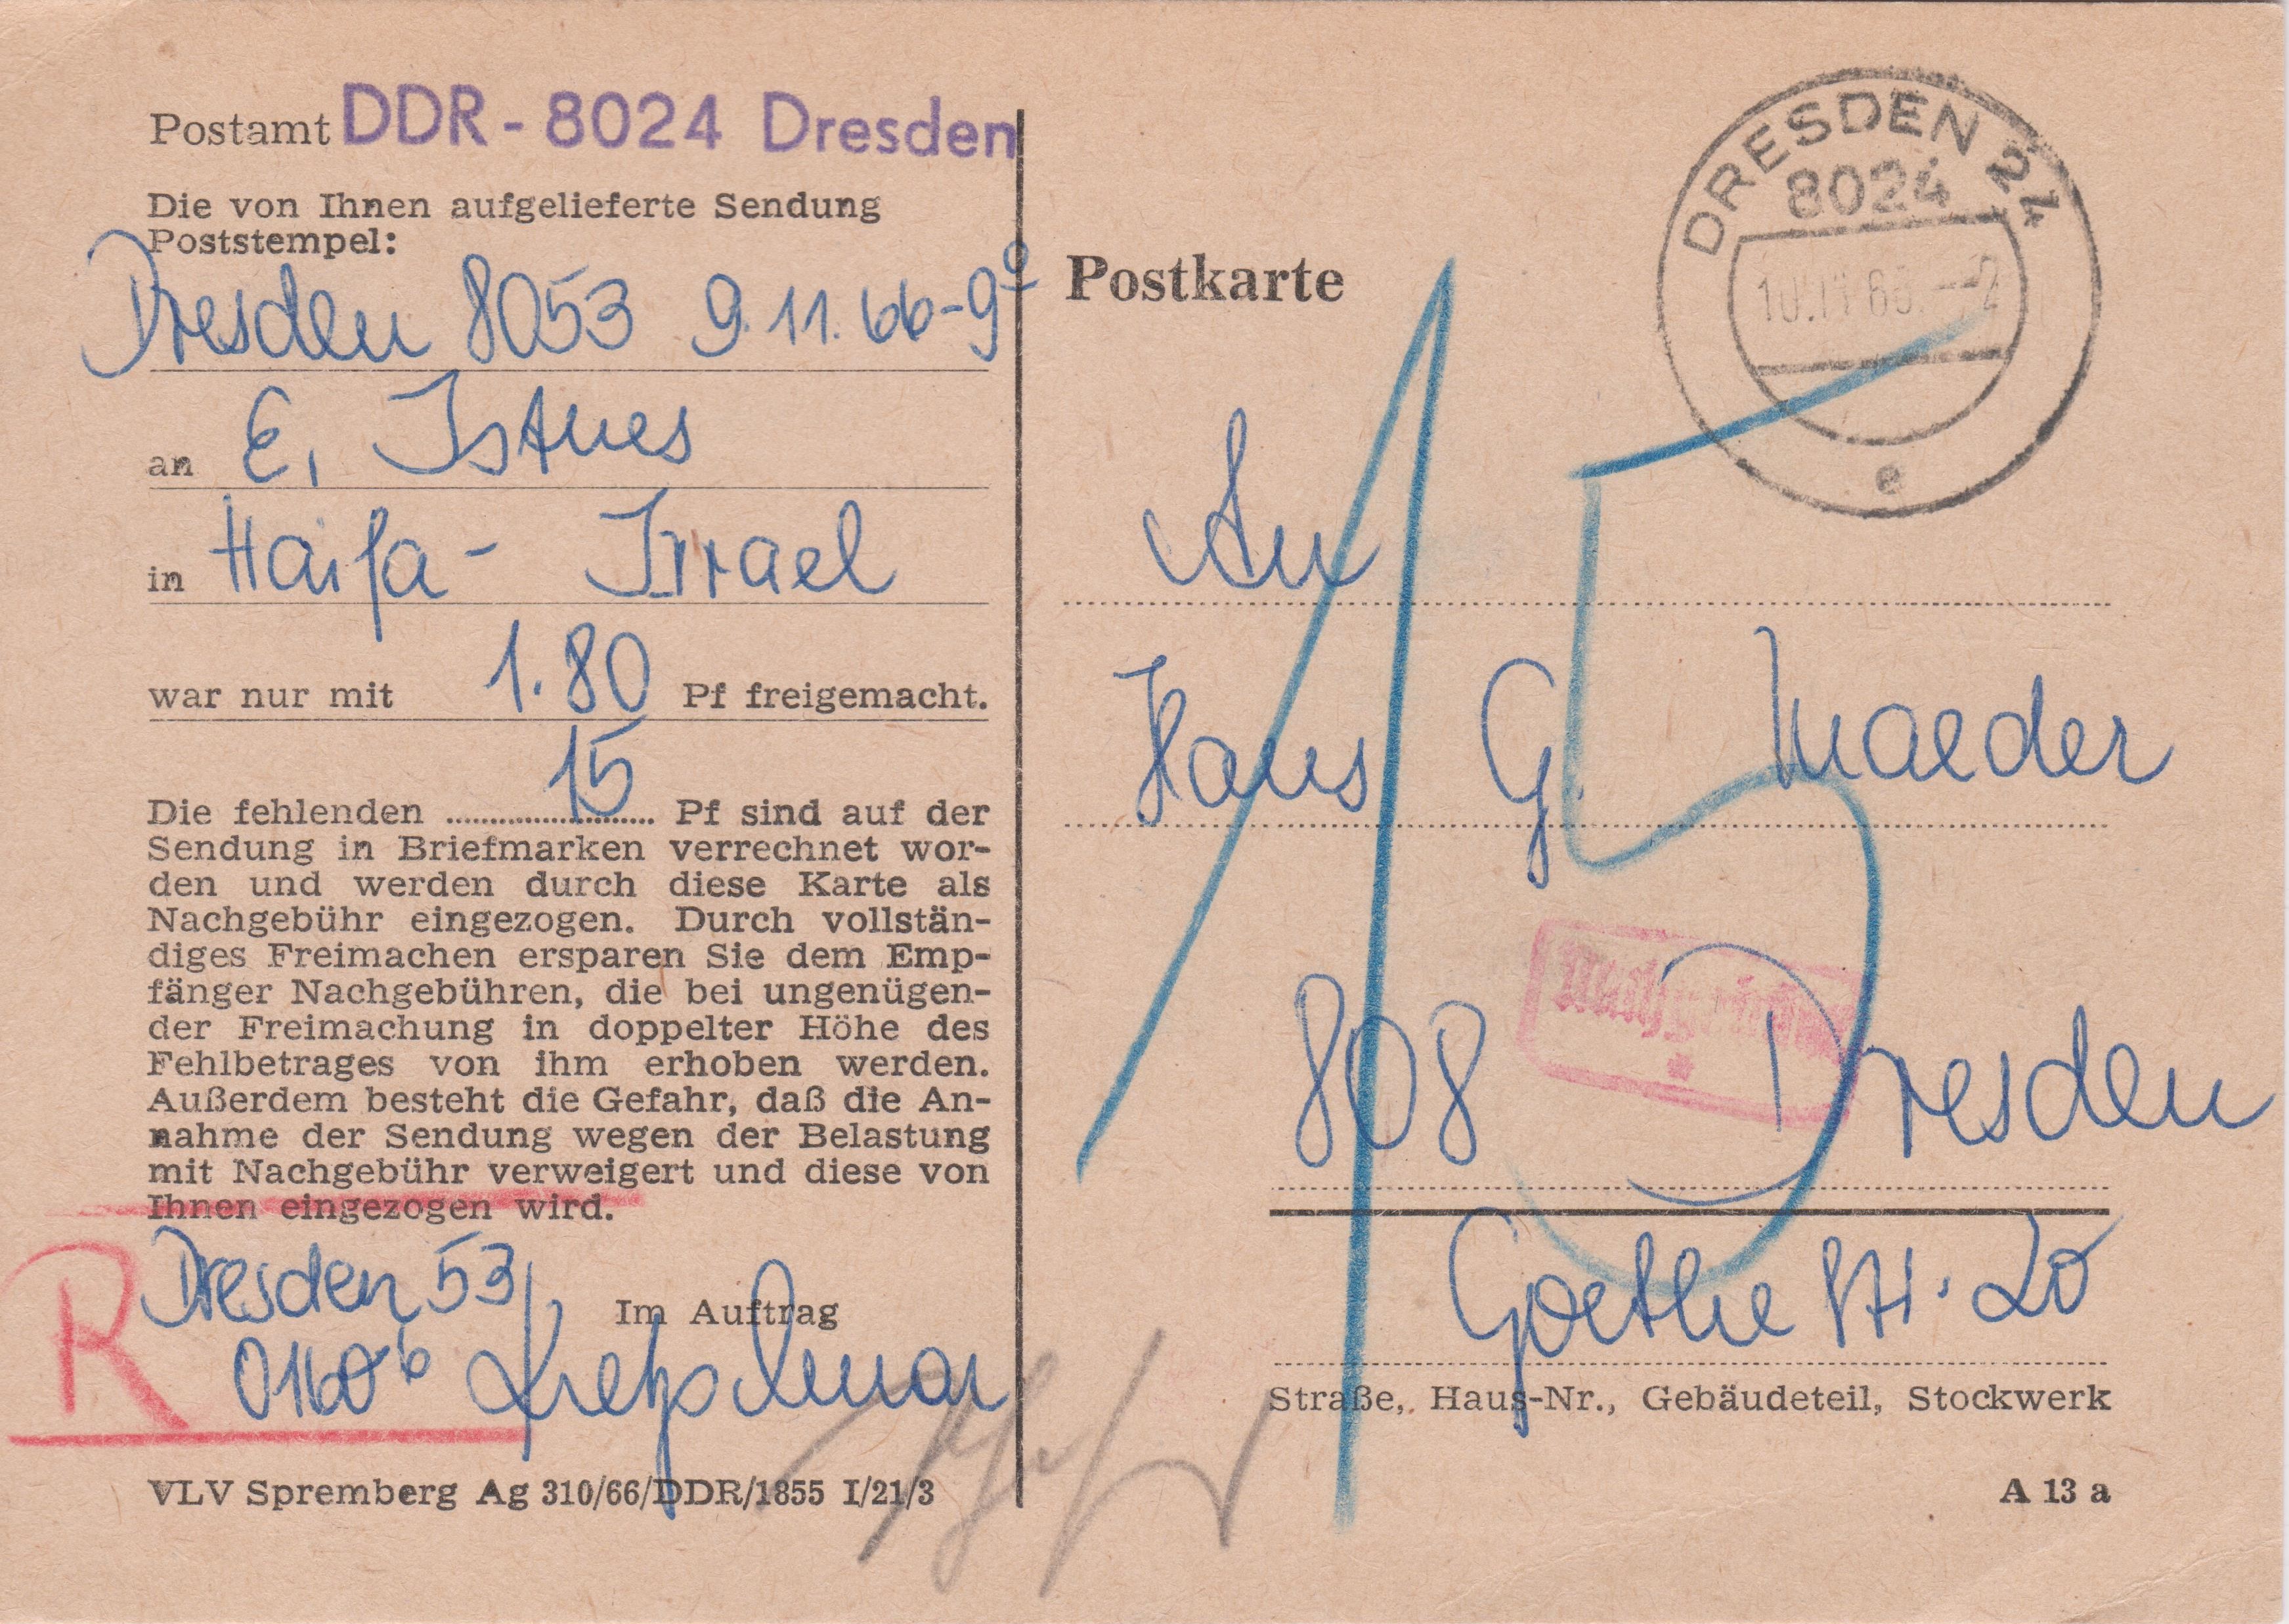 Postamt DDR - 8024 Dresden
Die von Ihnen aufgelieferte Sendung
Poststempel:
Dresden 8053 9.11.66-9⁰
an E. Istnes
in Haifa - Israel
war nur mit 1.80 Pf freigemacht.
Die fehlenden 15 Pf sind auf der
Sendung in Briefmarken verrechnet wor-
den und werden durch diese Karte als
Nachgebühr eingezogen. Durch vollstän-
diges Freimachen ersparen Sie dem Emp-
fänger Nachgebühren, die bei ungenügen-
der Freimachung in doppelter Höhe des
Fehlbetrages von ihm erhoben werden.
Außerdem besteht die Gefahr, daß die An-
nahme der Sendung wegen der Belastung
mit Nachgebühr verweigert und diese von
Ihnen eingezogen wird.
R
Dresden 53
Im Auftrag
VLV Spremberg Ag 310/66/DDR/1855 I/21/3
DRESDEN 24
8024
e
Postkarte
15
An
Hans G. Maeder
Nachgebühr
808 Dresden
Goethe Str. 20
Straße, Haus-Nr., Gebäudeteil, Stockwerk
A 13 a